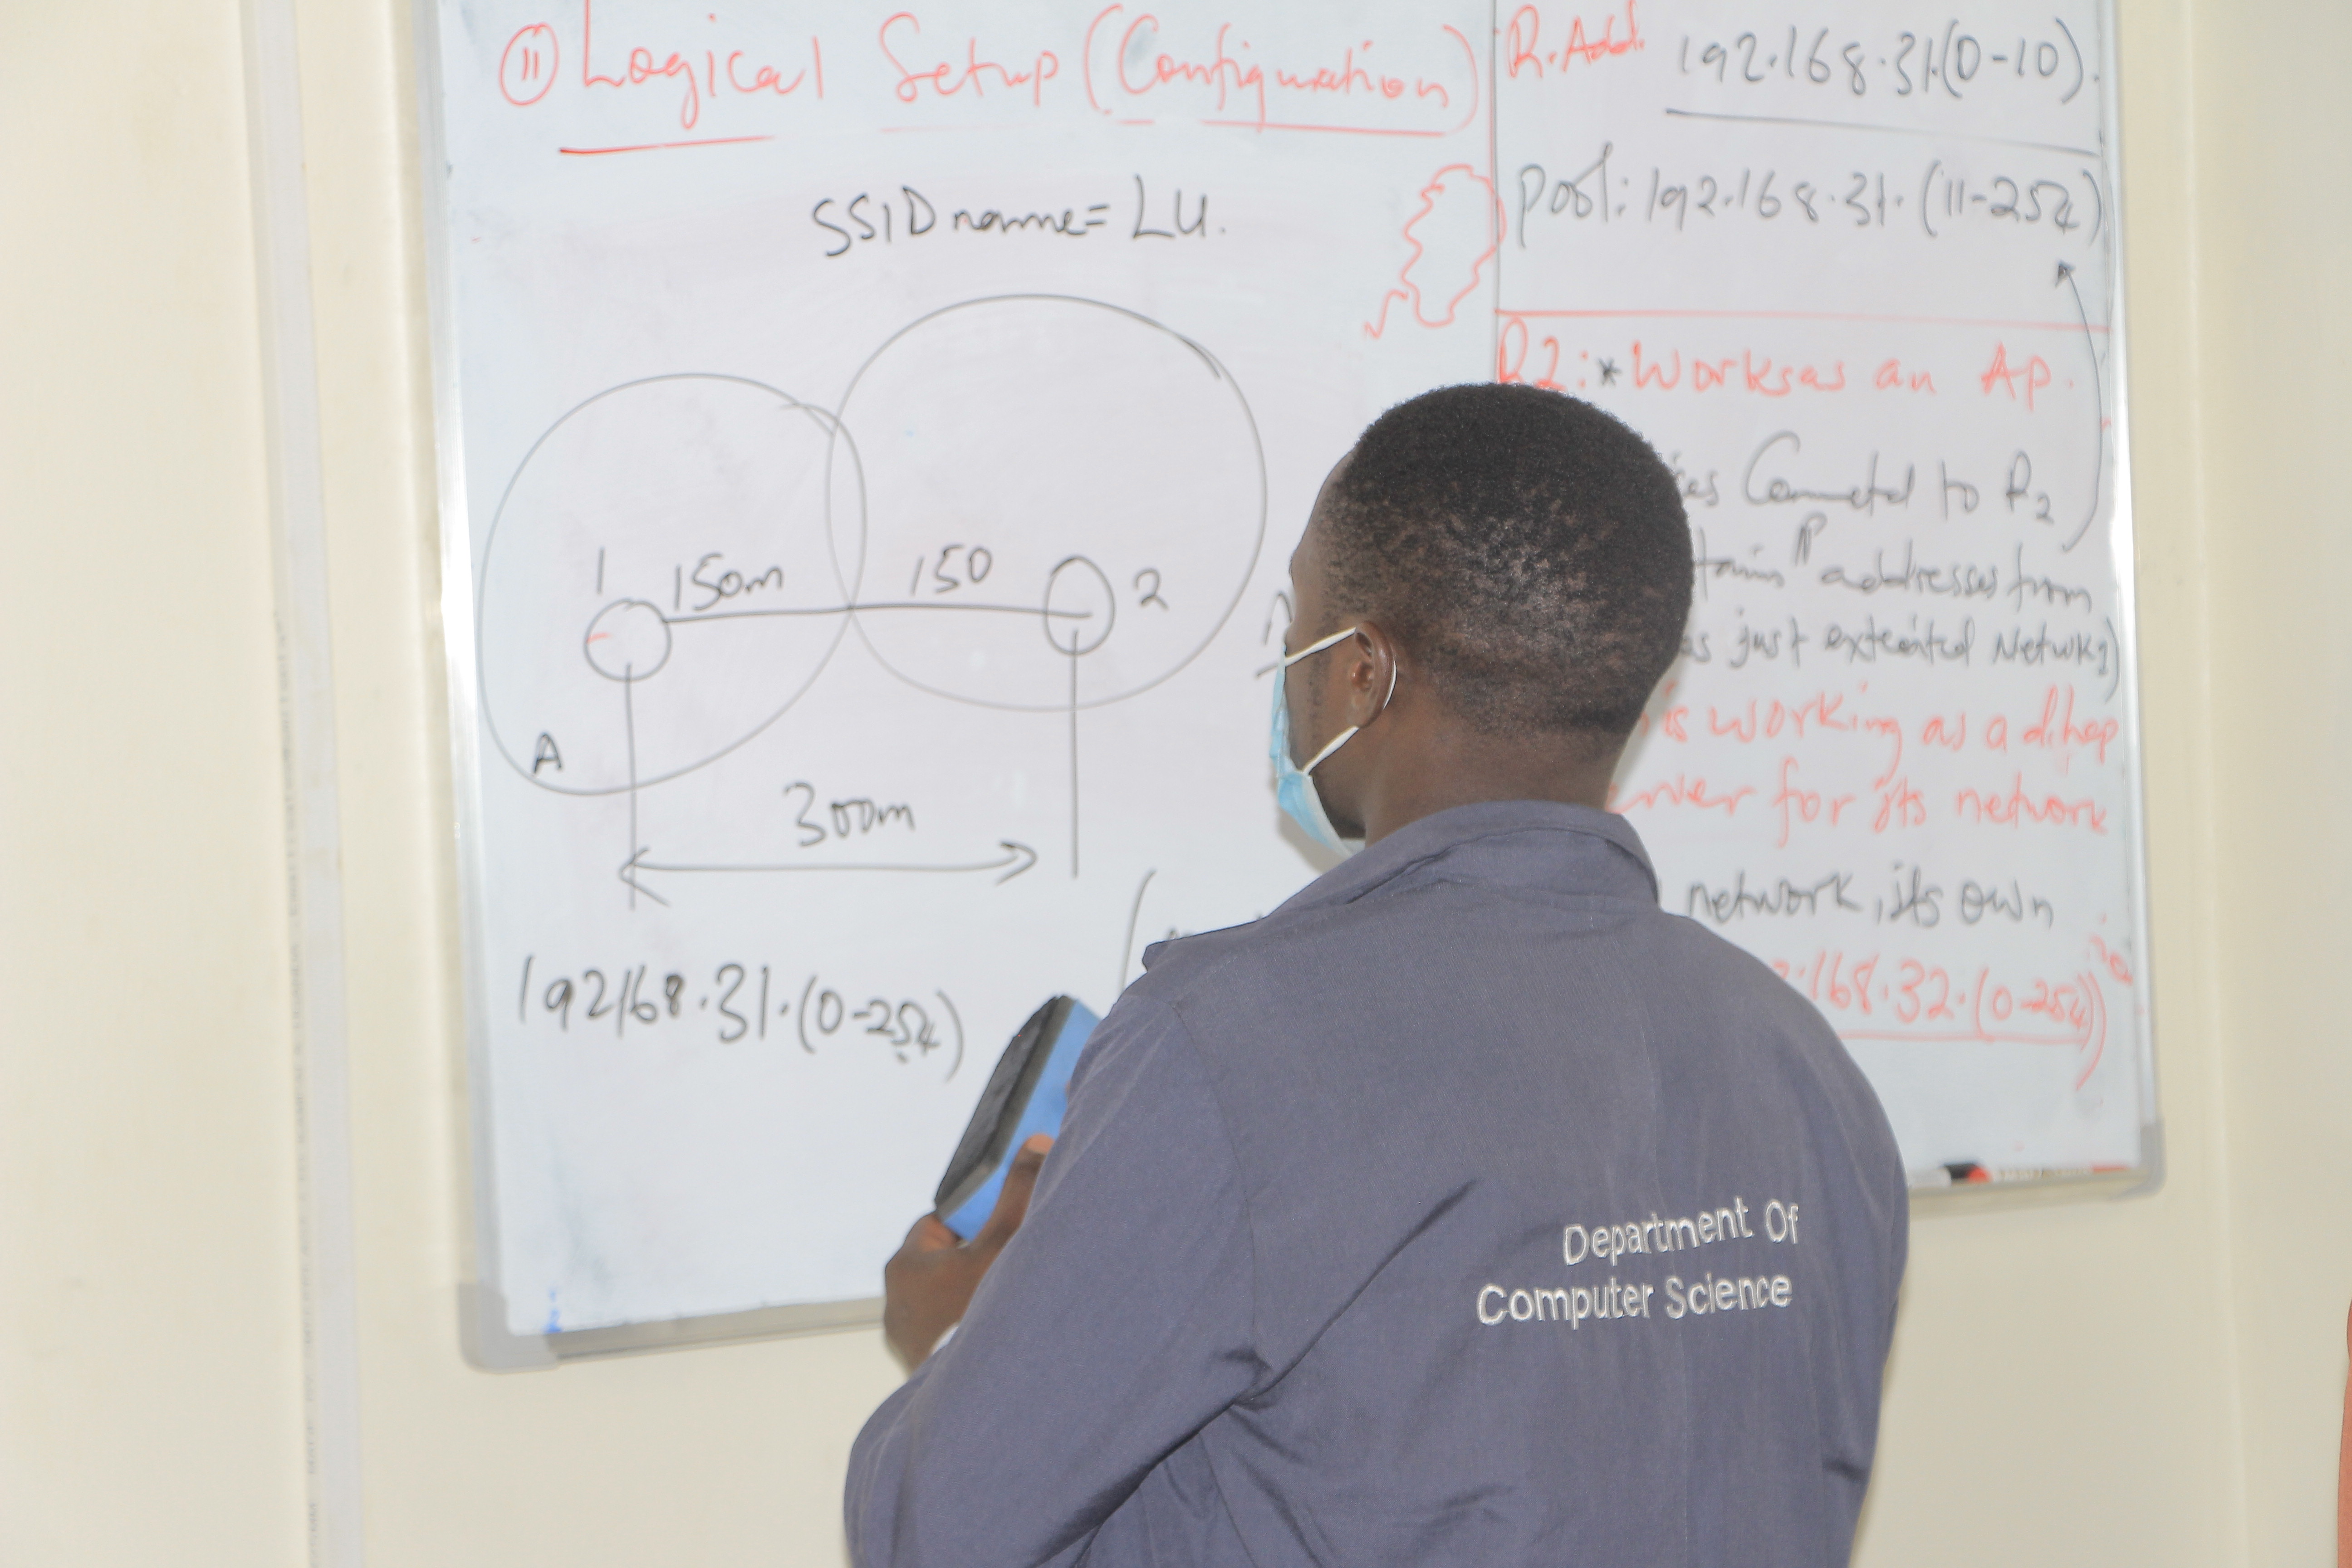 11 Logical Setup (Configuration)
SSID name = LU.
1 150m 150 2
A
300m
192168.31.(0-254)
R.Add. 192.168.31.(0-10).
Pool: 192.168.31.(11-254)
R2: * Works as an AP.
Connected to R2
IP addresses from
just extended Network1)
is working as a dhcp
for its network
network, its own
168.32.(0-254))
Department Of
Computer Science